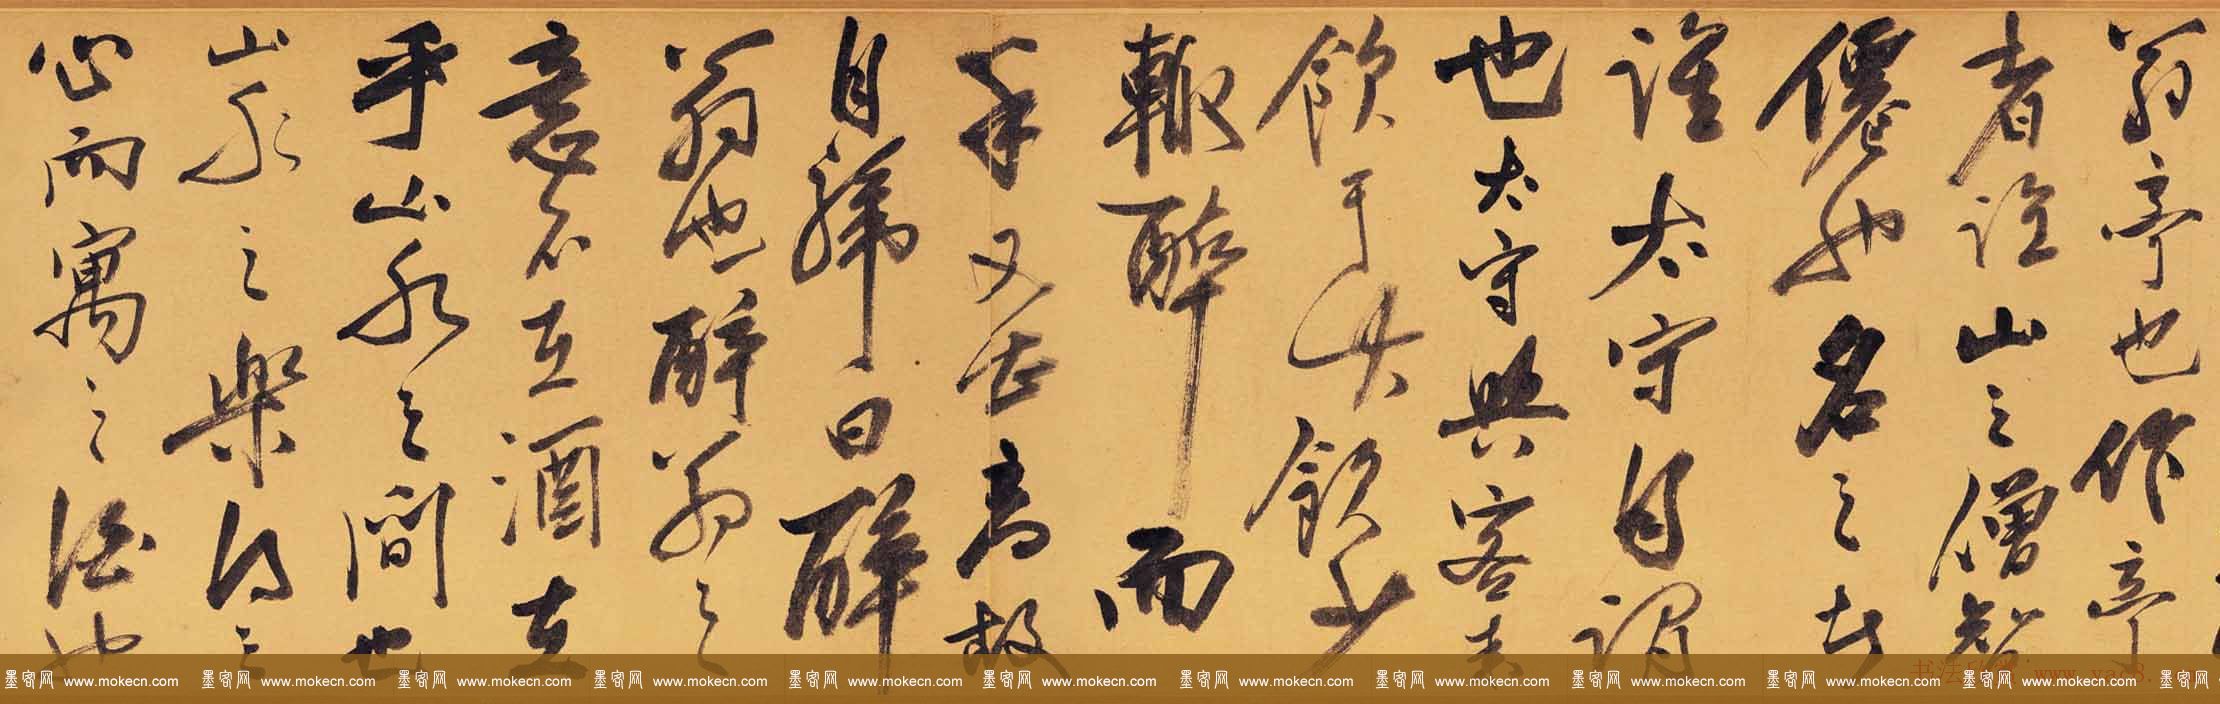 翁亭也作亭
者誰山之僧智
僊也名之者
誰太守自謂
也太守與客来
飲于此飲少
輒醉而
年又冣高故
自號曰醉
翁也醉翁之
意不在酒在
乎山水之間也
山水之樂得之
心而寓之酒也
墨客网 www.mokecn.com 墨客网 www.mokecn.com 墨客网 www.mokecn.com 墨客网 www.mokecn.com 墨客网 www.mokecn.com 墨客网 www.mokecn.com 墨客网 www.mokecn.com 墨客网 www.mokecn.com 墨客网 www.mokecn.com 墨客网 www.mokecn.com 墨客网 www.mokecn.com 墨客网